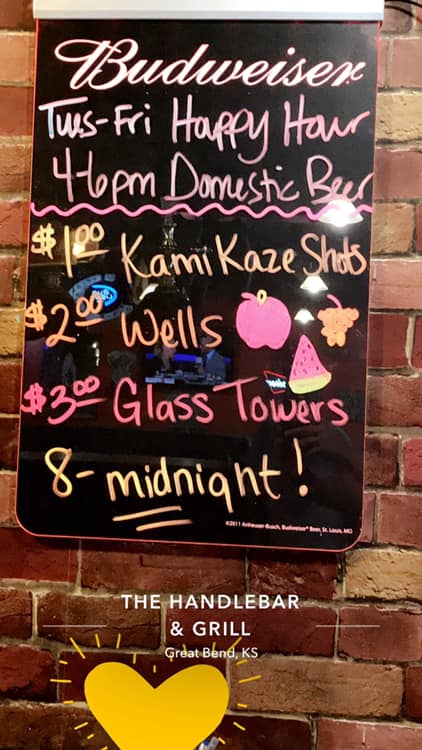 Budweiser
Tues-Fri Happy Hour
4-6pm Domestic Beer
$1.00 KamiKaze Shots
$2.00 Wells
$3.00 Glass Towers
8-midnight!
©2011 Anheuser-Busch, Budweiser® Beer, St. Louis, MO
THE HANDLEBAR
& GRILL
Great Bend, KS